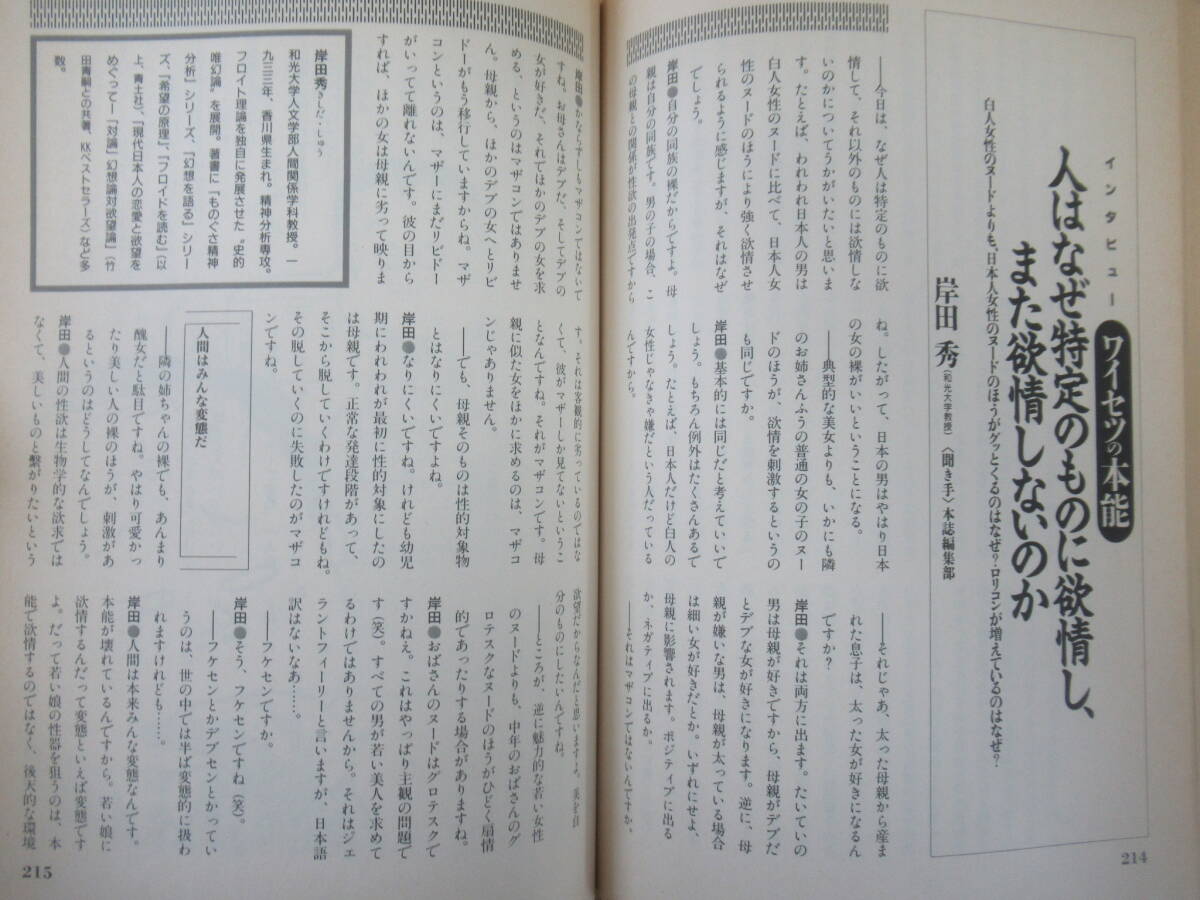 インタビュー
ワイセツの本能
人はなぜ特定のものに欲情し、
また欲情しないのか
白人女性のヌードよりも、日本人女性のヌードのほうがグッとくるのはなぜ?ロリコンが増えているのはなぜ?
岸田 秀(和光大学教授)〈聞き手〉本誌編集部
――今日は、なぜ人は特定のものに欲
情して、それ以外のものには欲情しな
いのかについてうかがいたいと思いま
す。たとえば、われわれ日本人の男は
白人女性のヌードに比べて、日本人女
性のヌードのほうにより強く欲情させ
られるように感じますが、それはなぜ
でしょう。
岸田●自分の同族の裸だからですよ。母
親は自分の同族です。男の子の場合、こ
の母親との関係が性欲の出発点ですから
ね。したがって、日本の男はやはり日本
の女の裸がいいということになる。
――典型的な美女よりも、いかにも隣
のお姉さんふうの普通の女の子のヌー
ドのほうが、欲情を刺激するというの
も同じですか。
岸田●基本的には同じだと考えていいで
しょう。もちろん例外はたくさんあるで
しょう。たとえば、日本人だけど白人の
女性じゃなきゃ嫌だという人だっている
んですから。
――それじゃあ、太った母親から産ま
れた息子は、太った女が好きになるん
ですか?
岸田●それは両方に出ます。たいていの
男は母親が好きですから、母親がデブだ
とデブな女が好きになります。逆に、母
親が嫌いな男は、母親が太っている場合
は細い女が好きだとか。いずれにせよ、
母親に影響されます。ポジティブに出る
か、ネガティブに出るか。
――それはマザコンではないんですか。
214
岸田●かならずしもマザコンではないで
すね。お母さんはデブだ、そしてデブの
女が好きだ、それでほかのデブの女を求
める、というのはマザコンではありませ
ん。母親から、ほかのデブの女へとリビ
ドーがもう移行していますからね。マザ
コンというのは、マザーにまだリビドー
がいってて離れないんです。彼の目から
すれば、ほかの女は母親に劣って映りま
岸田秀きしだ・しゅう
和光大学人文学部人間関係学科教授。一
九三三年、香川県生まれ。精神分析専攻。
フロイト理論を独自に発展させた〝史的
唯幻論〟を展開。著書に『ものぐさ精神
分析』シリーズ、『幻想を語る』シリー
ズ、『希望の原理』、『フロイドを読む』(以
上、青土社)、『現代日本人の恋愛と欲望を
めぐって――「対論」幻想論対欲望論』(竹
田青嗣との共著、KKベストセラーズ)など多
数。
す。それは客観的に劣っているのではな
くて、彼がマザーしか見てないというこ
となんですね。それがマザコンです。母
親に似た女をほかに求めるのは、マザコ
ンじゃありません。
――でも、母親そのものは性的対象物
とはなりにくいですよね。
岸田●なりにくいですね。けれども幼児
期にわれわれが最初に性的対象にしたの
は母親です。正常な発達段階があって、
そこから脱していくわけですけれどもね。
その脱していくのに失敗したのがマザコ
ンですね。
人間はみんな変態だ
――隣の姉ちゃんの裸でも、あんまり
醜女だと駄目ですね。やはり可愛かっ
たり美しい人の裸のほうが、刺激があ
るというのはどうしてなんでしょう。
岸田●人間の性欲は生物学的な欲求では
なくて、美しいものと繋がりたいという
欲望だからなんだと思いますよ。美を自
分のものにしたいんですね。
――ところが、逆に魅力的な若い女性
のヌードよりも、中年のおばさんのグ
ロテスクなヌードのほうがひどく扇情
的であったりする場合がありますね。
岸田●おばさんのヌードはグロテスクで
すかねえ。これはやっぱり主観の問題で
す(笑)。すべての男が若い美人を求めて
るわけではありませんから。それはジェ
ラントフィーリーと言いますが、日本語
訳はないなあ……。
――フケセンですか。
岸田●そう、フケセンですね(笑)。
――フケセンとかデブセンとかってい
うのは、世の中では半ば変態的に扱わ
れますけれども……。
岸田●人間は本来みんな変態なんです。
本能が壊れているんですから。若い娘に
欲情するんだって変態といえば変態です
よ。だって若い娘の性器を狙うのは、本
能で欲情するのではなく、後天的な環境
215